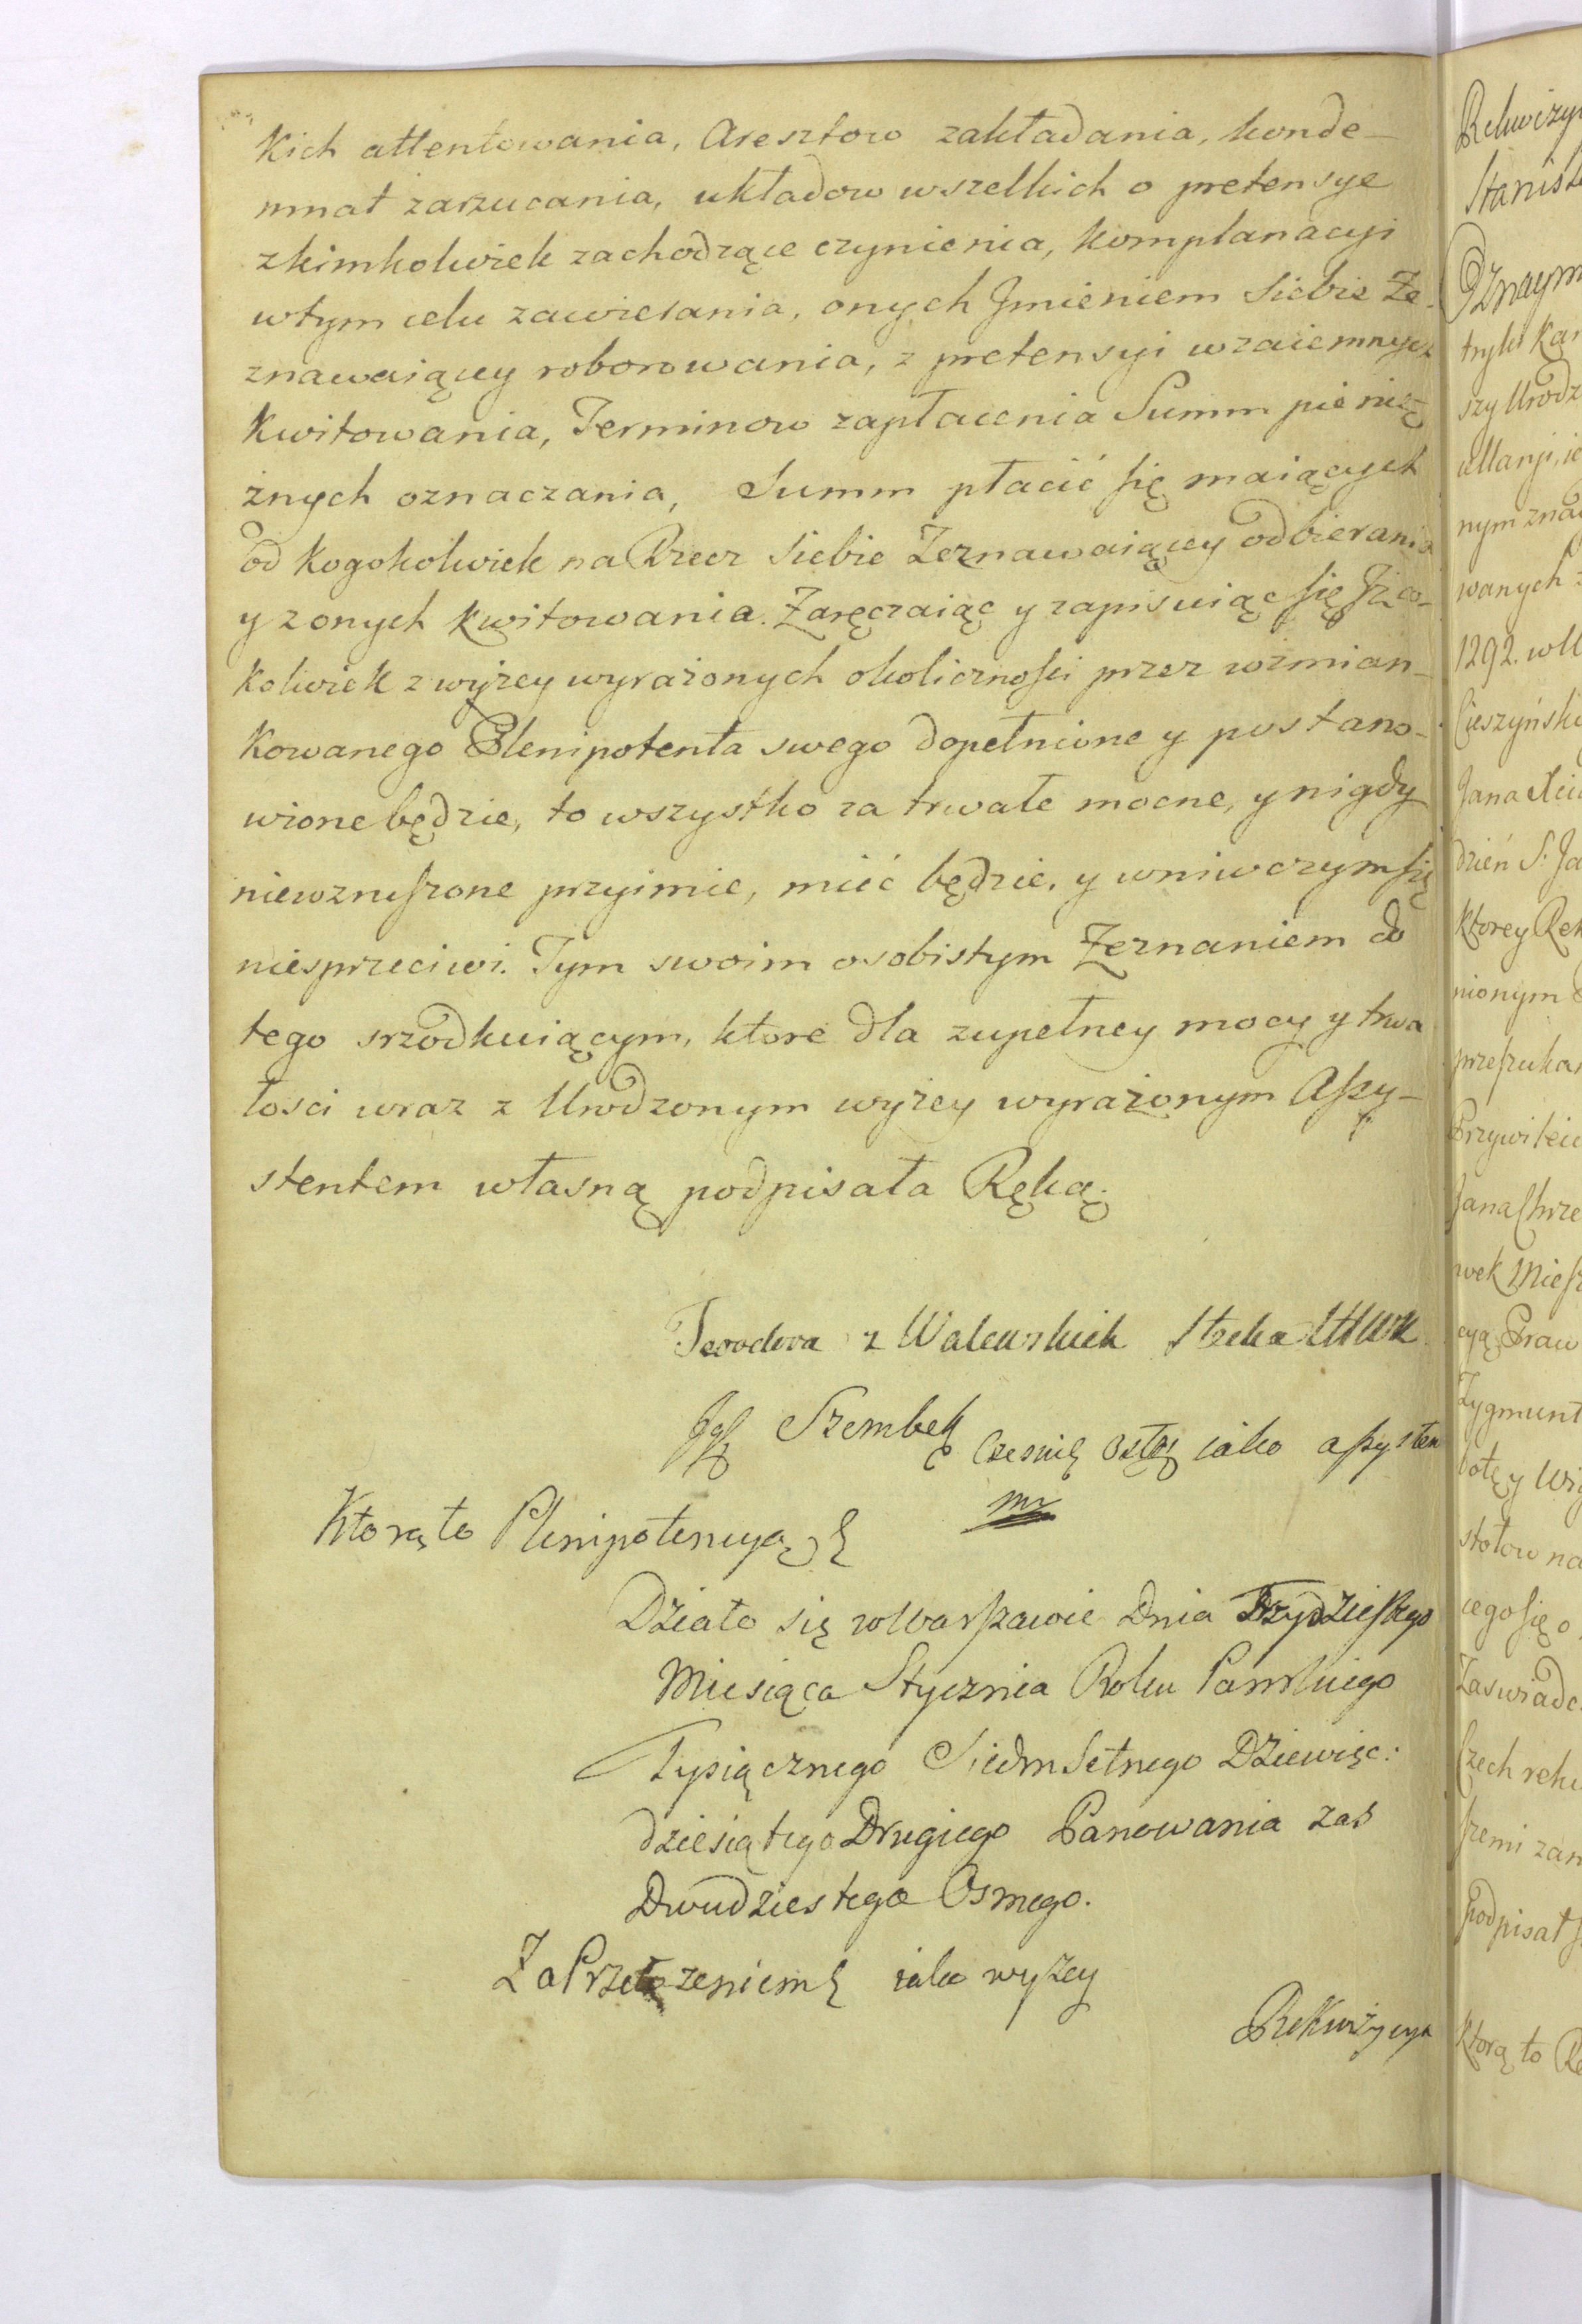 kich attentowania, Aresztow zakładania, konde-
mnat zarzucania, układow wszelkich o pretensye
zkimkolwiek zachodzące czynienia, komplanacyi
wtym celu zawierania, onych Jmieniem siebie Ze-
znawaiącey roborowania, z pretensyi wzaiemnych
kwitowania, Terminow zapłacenia Summ pienię
żnych oznaczania, Summ płacić się maiących
od kogokolwiek na Rzecz siebie Zeznawaiącey odbierania
y zonych kwitowania. Zaręczaiąc y zapisuiąc się Jż co-
kolwiek z wyżey wyrażonych okoliczności przez wzmian-
kowanego Plenipotenta swego dopełnione y postano-
wione będzie, to wszystko za trwałe mocne, y nigdy
niewzruszone przyimie, mieć będzie, y wniwczym się
niesprzeciwi. Tym swoim osobistym Zeznaniem do
tego srzodkuiącym, które dla zupełney mocy y trwa
łosci wraz z Urodzonym wyżey wyrażonym Assy-
stentem własną podpisała Ręką.
Teodora z Walewskich Stecka
Szembek Cześnik iako assysten
mp
Ktorą to Plenipotencyą
Działo się w Warszawie Dnia Trzydziestego
Miesiąca Stycznia Roku Panskiego
Tysiącznego Siedmsetnego Dziewięc:
dziesiątego Drugiego Panowania zas
Dwudziestego Osmego.
Za Przełożeniem iako wyżey
Rekwizycya
Rekwizy
Stanisł
Oznaym
szy Urodz
nym zna
wanych
1292. w
Cieszyńsk
Jana
dzień S. Ja
ktorey Rek
nionym
przeszuka
Przywilei
Jana Chrze
wek Miesz
cyą Praw
Zygmunt
botę y Wi
stołow na
cego się o
Zaswiadc
Czech
szemi zan
podpisał
ktorą to Re